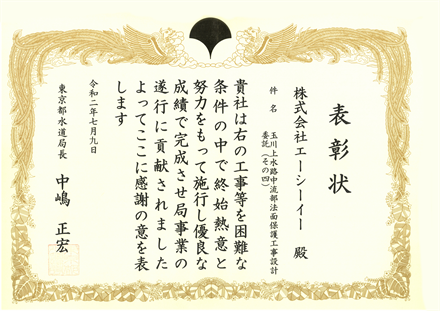 表彰状
株式会社エーシーイー 殿
件名 玉川上水路中流部法面保護工事設計
委託(その四)
貴社は右の工事等を困難な
条件の中で終始熱意と
努力をもって施行し優良な
成績で完成させ局事業の
遂行に貢献されました
よってここに感謝の意を表
します
令和二年七月九日
東京都水道局長 中嶋 正宏